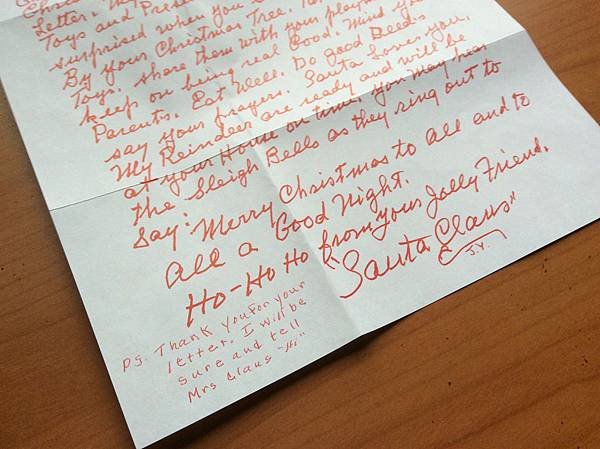 Letter. My
Toys and Prese
surprised when you
By your Christmas Tree.
Toys. share them with your playm
keep on being real Good. Mind you
Parents. Eat Well. Do good Deeds
say your prayers. Santa Loves you.
My Reindeer are ready and will be
at your House on time. you may hear
the Sleigh Bells as they ring out to
say: "Merry Christmas to all and to
all a Good Night.
Ho-Ho Ho from your Jolly Friend.
"Santa Claus"
J.Y.
PS. Thank you For your
letter. I will be
sure and tell
Mrs Claus "Hi"